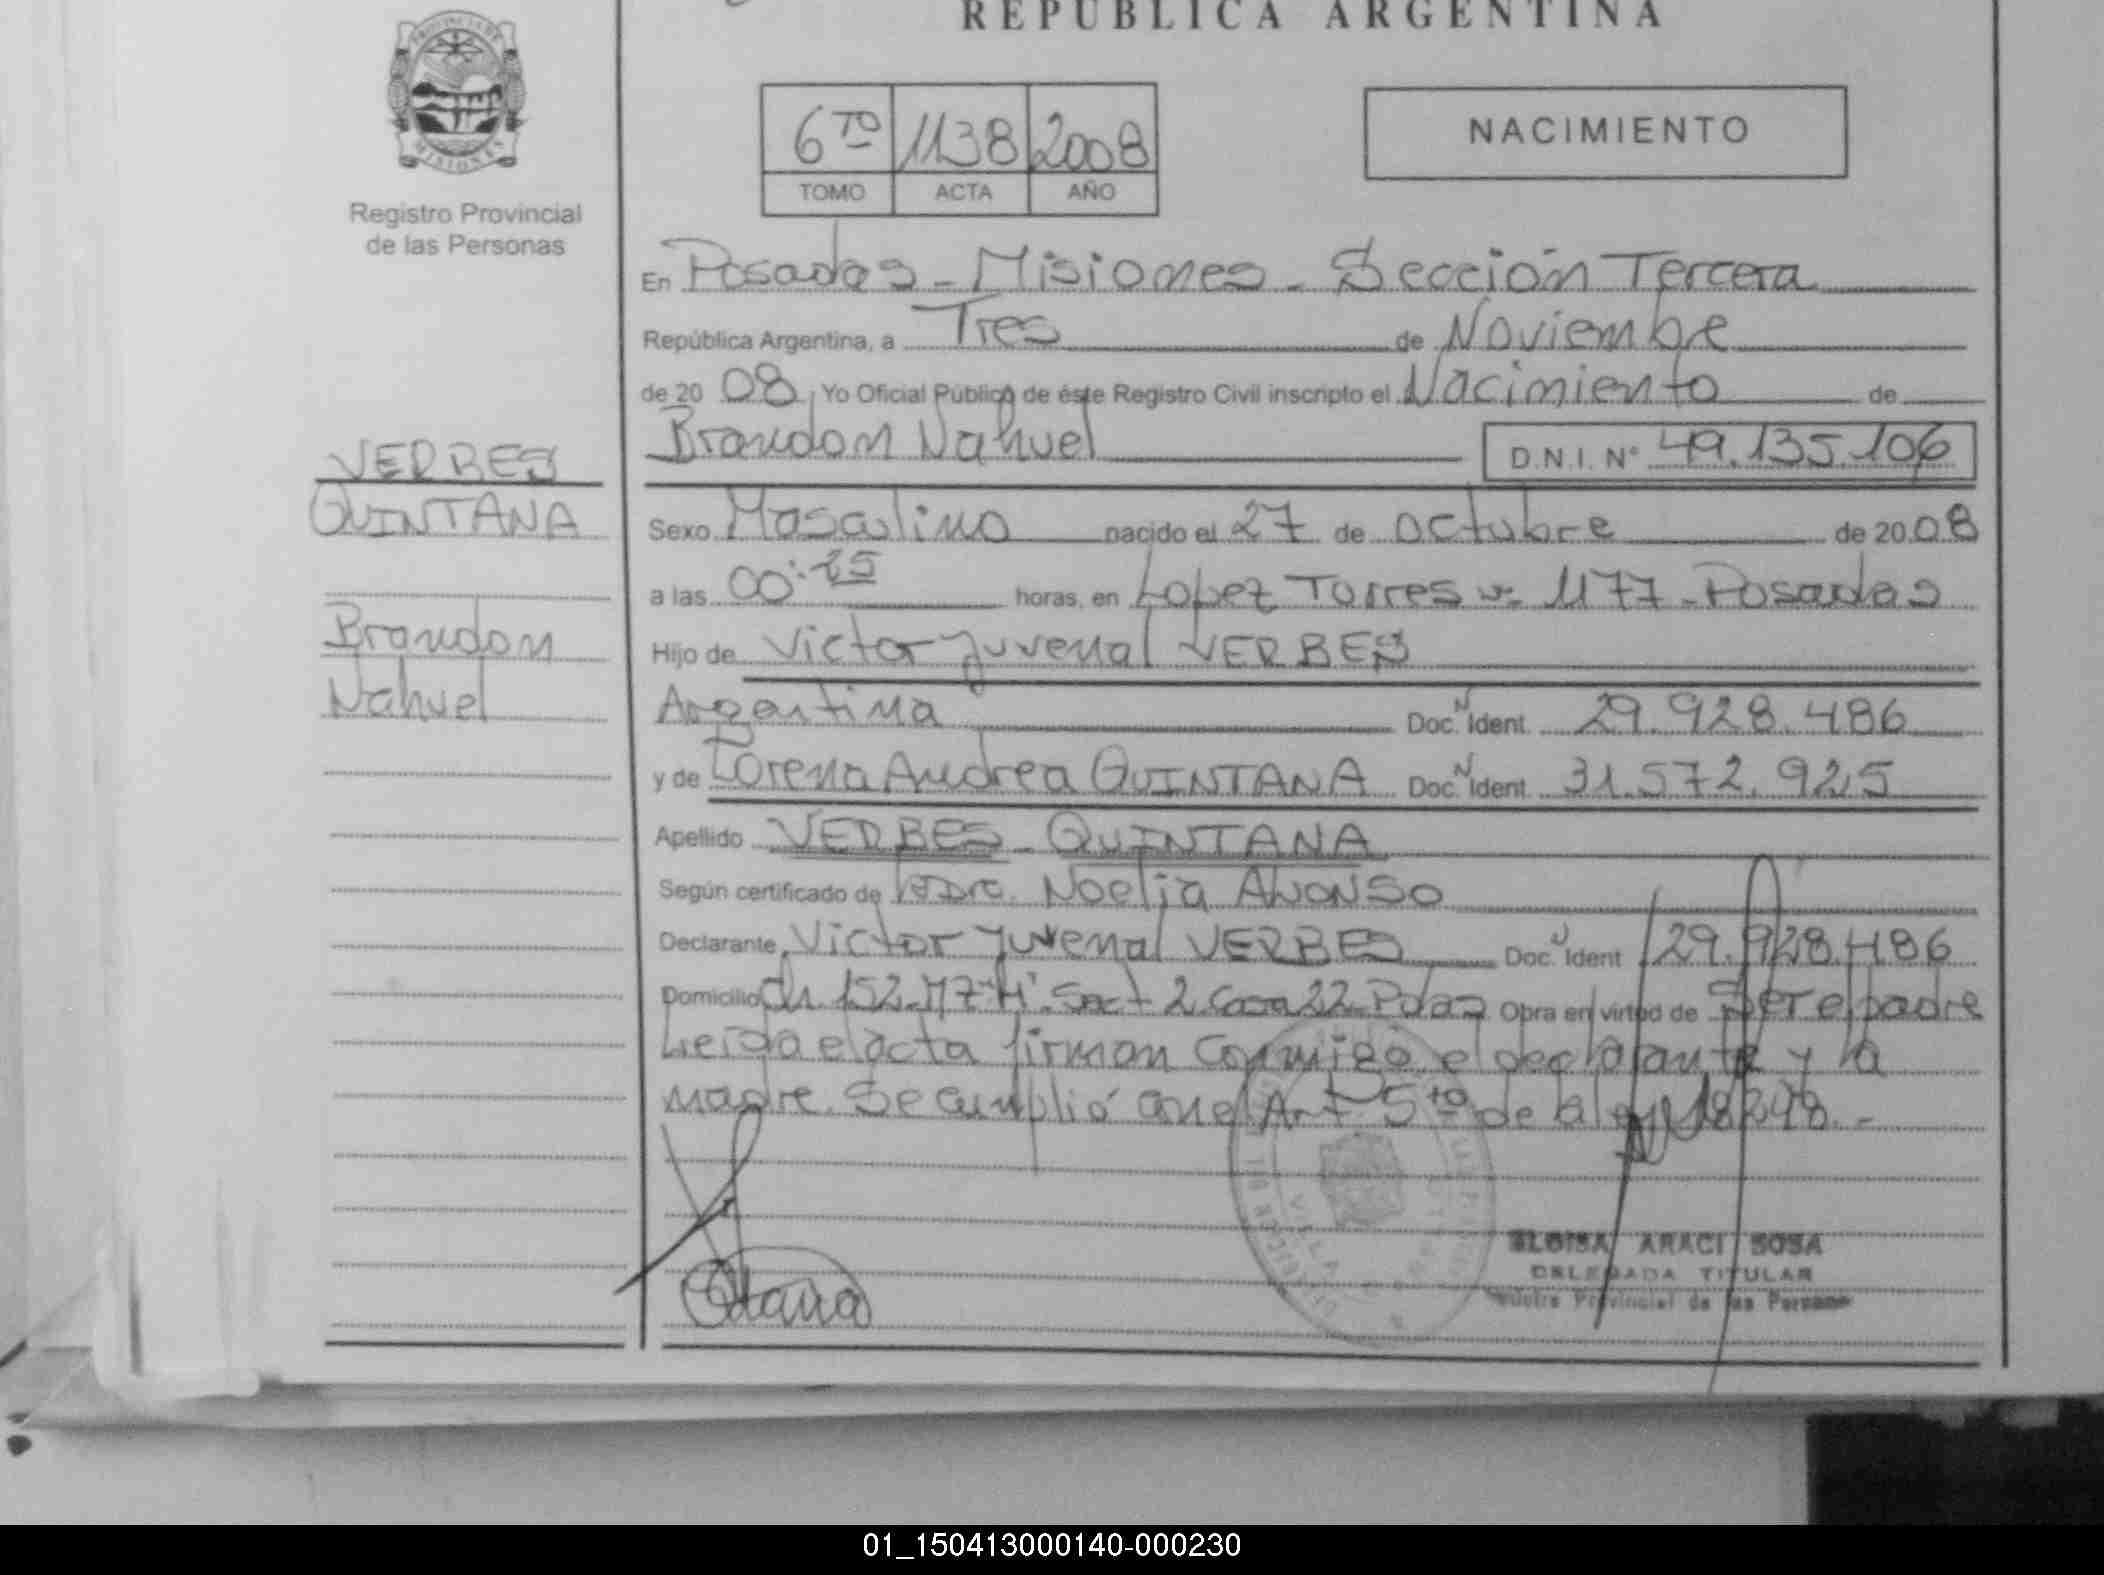 REPÚBLICA ARGENTINA
PROVINCIA DE MISIONES
Registro Provincial
de las Personas
6TO 1138 2008
TOMO ACTA AÑO
NACIMIENTO
En Posadas - Misiones - Sección Tercera
República Argentina, a Tres de Noviembre
de 20 08, Yo Oficial Público de éste Registro Civil inscripto el Nacimiento de
Brandon Nahuel D.N.I. N° 49.135.106
VERBES
QUINTANA
Brandon
Nahuel
Sexo Masculino nacido el 27 de octubre de 20 08
a las 00:25 horas, en Lopez Torres n° 1177 - Posadas
Hijo de Victor Juvenal VERBES
Argentina Doc. N Ident. 29.928.486
y de Lorena Andrea QUINTANA Doc. N Ident. 31.572.925
Apellido VERBES - QUINTANA
Según certificado de Dra. Noelia
Declarante Victor Juvenal VERBES Doc. Ident 29.928.486
Domicilio Ch. 152 Sect 2 Casa 22 Pdas Obra en virtud de Ser el padre
Leída el acta firman conmigo el declarante y la
madre. Se cumplió con el Art 5to de la ley 18248.-
ELOISA ARACI SOSA
DELEGADA TITULAR
Provincial de las Personas
01_150413000140-000230